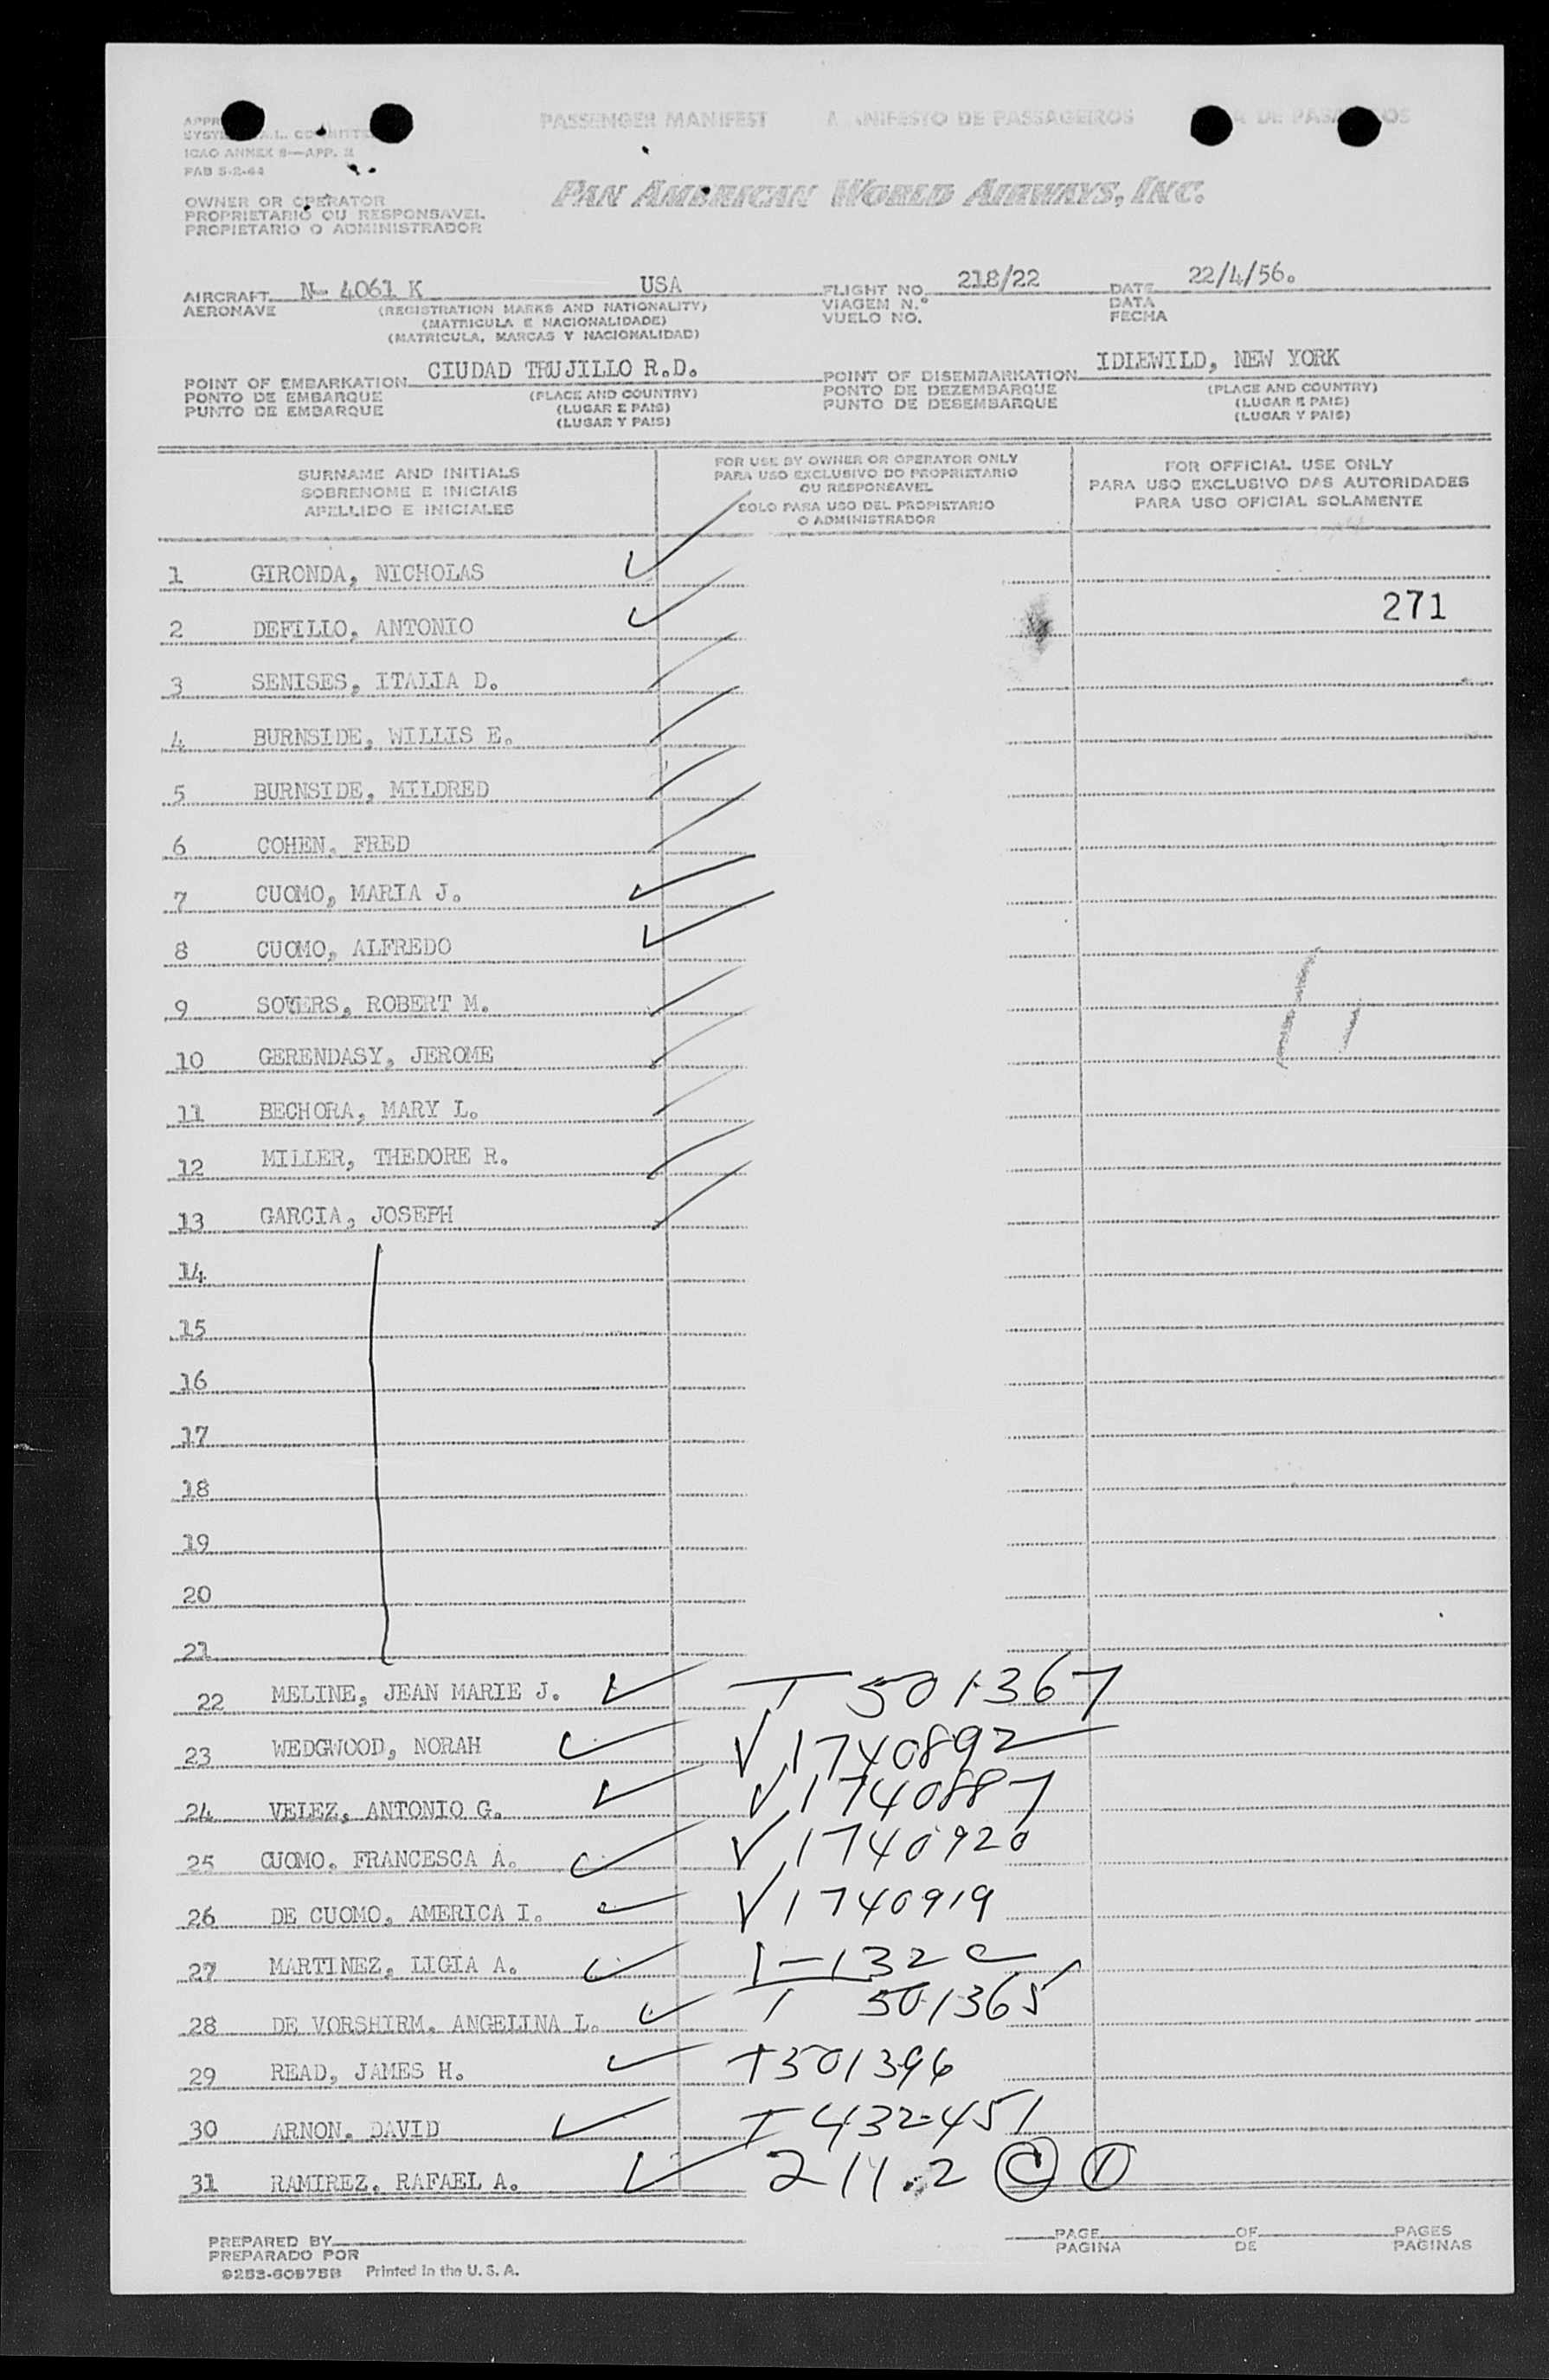 PASSENGER MANIFEST MANIFESTO DE PASSAGEIROS DE
ICAO ANNEX 9—APP.
PAB 5-2-44
PAN AMERICAN WORLD AIRWAYS, INC.
OWNER OR OPERATOR
PROPRIETARIO OU RESPONSAVEL
PROPIETARIO O ADMINISTRADOR
AIRCRAFT N- 4061 K USA FLIGHT NO. 218/22 DATE 22/4/56.
AERONAVE (REGISTRATION MARKS AND NATIONALITY) VIAGEM N.° DATA
(MATRICULA E NACIONALIDADE) VUELO NO. FECHA
(MATRICULA, MARCAS Y NACIONALIDAD)
POINT OF EMBARKATION CIUDAD TRUJILLO R.D. POINT OF DISEMBARKATION IDLEWILD, NEW YORK
PONTO DE EMBARQUE (PLACE AND COUNTRY) PONTO DE DEZEMBARQUE (PLACE AND COUNTRY)
PUNTO DE EMBARQUE (LUGAR E PAIS) PUNTO DE DESEMBARQUE (LUGAR E PAIS)
(LUGAR Y PAIS) (LUGAR Y PAIS)
SURNAME AND INITIALS
SOBRENOME E INICIAIS
APELLIDO E INICIALES
FOR USE BY OWNER OR OPERATOR ONLY
PARA USO EXCLUSIVO DO PROPRIETARIO
OU RESPONSAVEL
SOLO PARA USO DEL PROPIETARIO
O ADMINISTRADOR
FOR OFFICIAL USE ONLY
PARA USO EXCLUSIVO DAS AUTORIDADES
PARA USO OFICIAL SOLAMENTE
1 GIRONDA, NICHOLAS
271
2 DEFILLO, ANTONIO
3 SENISES, ITALIA D.
4 BURNSIDE, WILLIS E.
5 BURNSIDE, MILDRED
6 COHEN, FRED
7 CUOMO, MARIA J.
8 CUOMO, ALFREDO
9 ROBERT M.
10 GERENDASY, JEROME
11 BECHORA, MARY L.
12 MILLER, THEDORE R.
13 GARCIA, JOSEPH
14
15
16
17
18
19
20
21
22 MELINE, JEAN MARIE J. T 501367
23 WEDGWOOD, NORAH V 1740892
24 VELEZ, ANTONIO G. V 1740887
25 CUOMO, FRANCESCA A. V 1740920
26 DE CUOMO, AMERICA I. V 1740919
27 MARTINEZ, LIGIA A. I-132
28 DE VORSHIRM, ANGELINA L. T 501365
29 READ, JAMES H. T 501396
30 ARNON, DAVID T 432451
31 RAMIREZ, RAFAEL A. 211.2 C 1
PREPARED BY PAGE OF PAGES
PREPARADO POR PAGINA DE PAGINAS
9253-60975B Printed in the U. S. A.